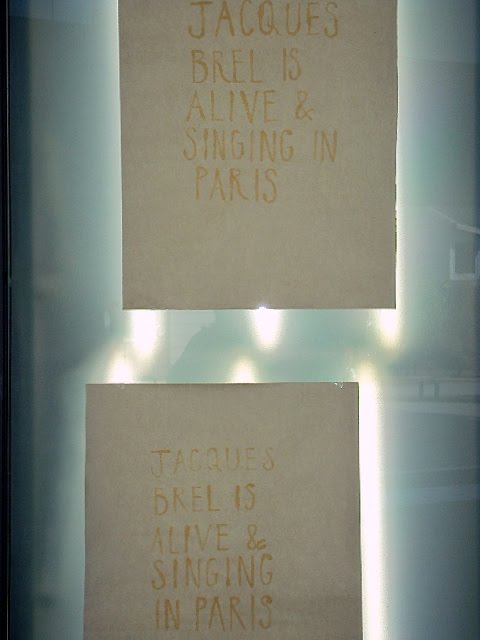 JACQUES
BREL IS
ALIVE &
SINGING IN
PARIS
JACQUES
BREL IS
ALIVE &
SINGING
IN PARIS